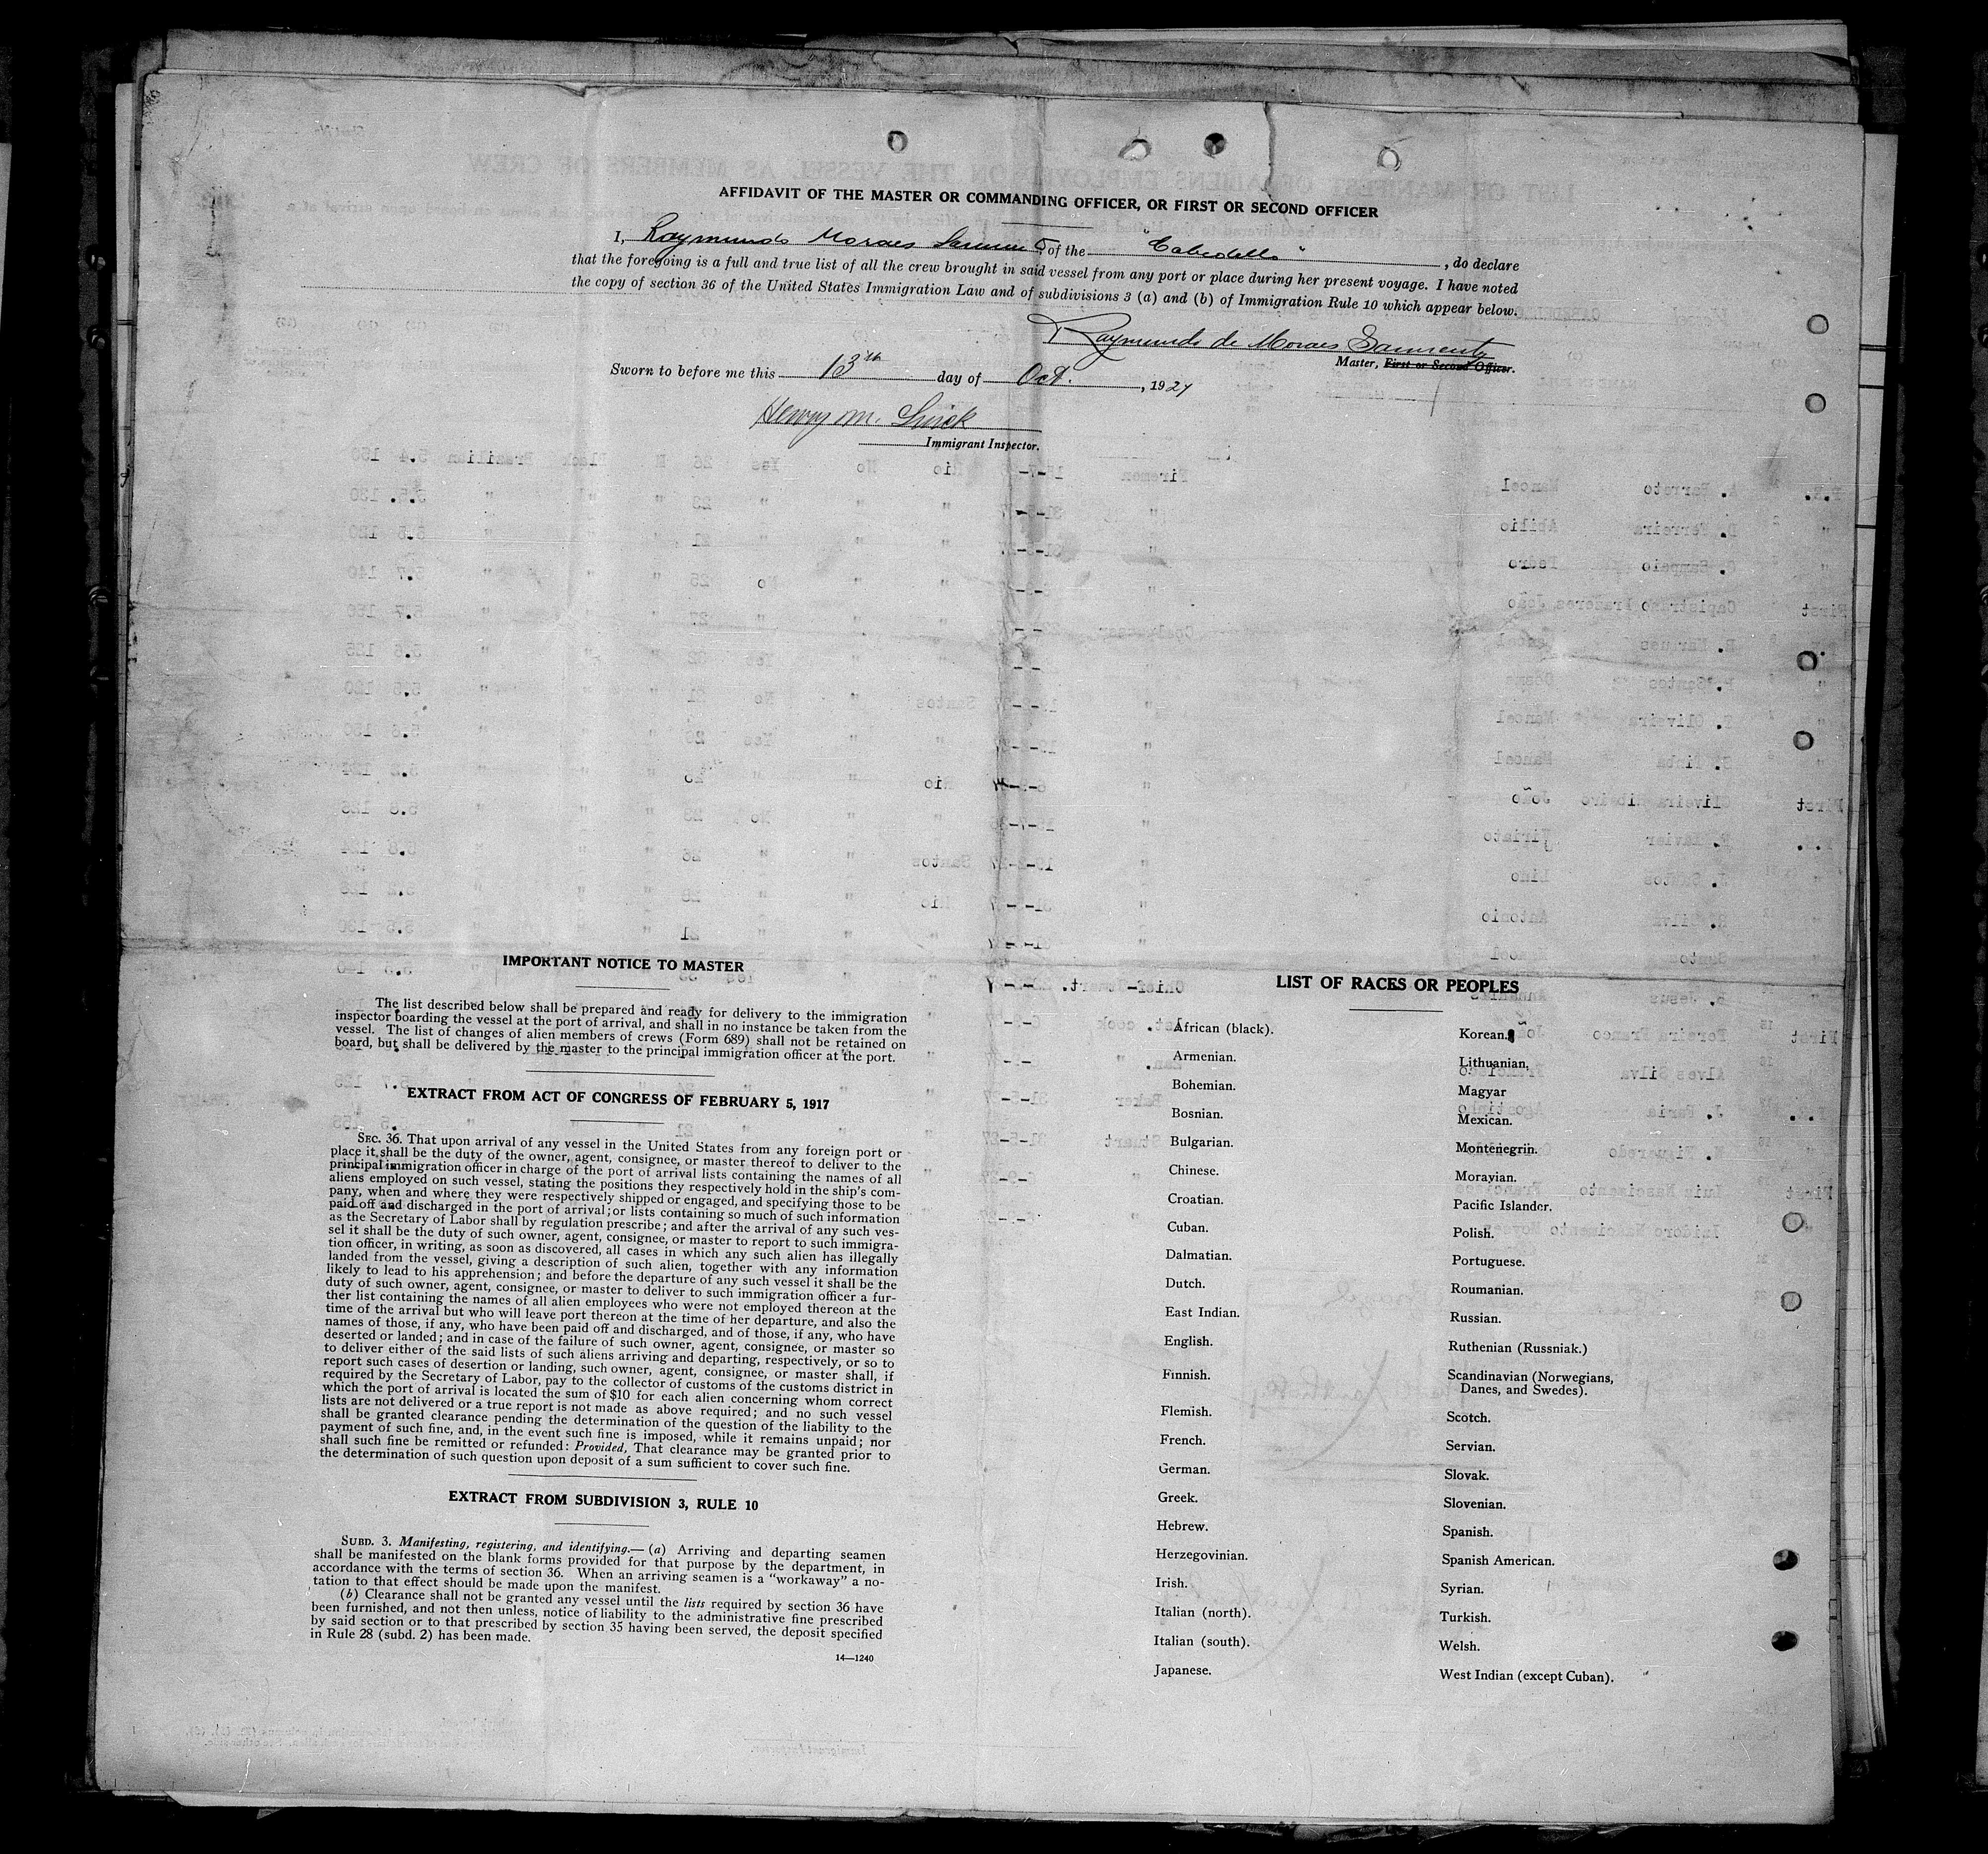 AFFIDAVIT OF THE MASTER OR COMMANDING OFFICER, OR FIRST OR SECOND OFFICER
I, Raymundo Moraes Sarmento, of the "Cabedello", do declare
that the foregoing is a full and true list of all the crew brought in said vessel from any port or place during her present voyage. I have noted
the copy of section 36 of the United States Immigration Law and of subdivisions 3 (a) and (b) of Immigration Rule 10 which appear below.
Raymundo de Moraes Sarmento
Master, First or Second Officer.
Sworn to before me this 13th day of Oct., 1927
Henry M.
Immigrant Inspector.
IMPORTANT NOTICE TO MASTER
The list described below shall be prepared and ready for delivery to the immigration
inspector boarding the vessel at the port of arrival, and shall in no instance be taken from the
vessel. The list of changes of alien members of crews (Form 689) shall not be retained on
board, but shall be delivered by the master to the principal immigration officer at the port.
EXTRACT FROM ACT OF CONGRESS OF FEBRUARY 5, 1917
SEC. 36. That upon arrival of any vessel in the United States from any foreign port or
place it shall be the duty of the owner, agent, consignee, or master thereof to deliver to the
principal immigration officer in charge of the port of arrival lists containing the names of all
aliens employed on such vessel, stating the positions they respectively hold in the ship's com-
pany, when and where they were respectively shipped or engaged, and specifying those to be
paid off and discharged in the port of arrival; or lists containing so much of such information
as the Secretary of Labor shall by regulation prescribe; and after the arrival of any such ves-
sel it shall be the duty of such owner, agent, consignee, or master to report to such immigra-
tion officer, in writing, as soon as discovered, all cases in which any such alien has illegally
landed from the vessel, giving a description of such alien, together with any information
likely to lead to his apprehension; and before the departure of any such vessel it shall be the
duty of such owner, agent, consignee, or master to deliver to such immigration officer a fur-
ther list containing the names of all alien employees who were not employed thereon at the
time of the arrival but who will leave port thereon at the time of her departure, and also the
names of those, if any, who have been paid off and discharged, and of those, if any, who have
deserted or landed; and in case of the failure of such owner, agent, consignee, or master so
to deliver either of the said lists of such aliens arriving and departing, respectively, or so to
report such cases of desertion or landing, such owner, agent, consignee, or master shall, if
required by the Secretary of Labor, pay to the collector of customs of the customs district in
which the port of arrival is located the sum of $10 for each alien concerning whom correct
lists are not delivered or a true report is not made as above required; and no such vessel
shall be granted clearance pending the determination of the question of the liability to the
payment of such fine, and, in the event such fine is imposed, while it remains unpaid; nor
shall such fine be remitted or refunded: Provided, That clearance may be granted prior to
the determination of such question upon deposit of a sum sufficient to cover such fine.
EXTRACT FROM SUBDIVISION 3, RULE 10
SUBD. 3. Manifesting, registering, and identifying.—(a) Arriving and departing seamen
shall be manifested on the blank forms provided for that purpose by the department, in
accordance with the terms of section 36. When an arriving seamen is a "workaway" a no-
tation to that effect should be made upon the manifest.
(b) Clearance shall not be granted any vessel until the lists required by section 36 have
been furnished, and not then unless, notice of liability to the administrative fine prescribed
by said section or to that prescribed by section 35 having been served, the deposit specified
in Rule 28 (subd. 2) has been made.
14—1240
LIST OF RACES OR PEOPLES
African (black).
Armenian.
Bohemian.
Bosnian.
Bulgarian.
Chinese.
Croatian.
Cuban.
Dalmatian.
Dutch.
East Indian.
English.
Finnish.
Flemish.
French.
German.
Greek.
Hebrew.
Herzegovinian.
Irish.
Italian (north).
Italian (south).
Japanese.
Korean.
Lithuanian.
Magyar
Mexican.
Montenegrin.
Moravian.
Pacific Islander.
Polish.
Portuguese.
Roumanian.
Russian.
Ruthenian (Russniak.)
Scandinavian (Norwegians,
Danes, and Swedes).
Scotch.
Servian.
Slovak.
Slovenian.
Spanish.
Spanish American.
Syrian.
Turkish.
Welsh.
West Indian (except Cuban).